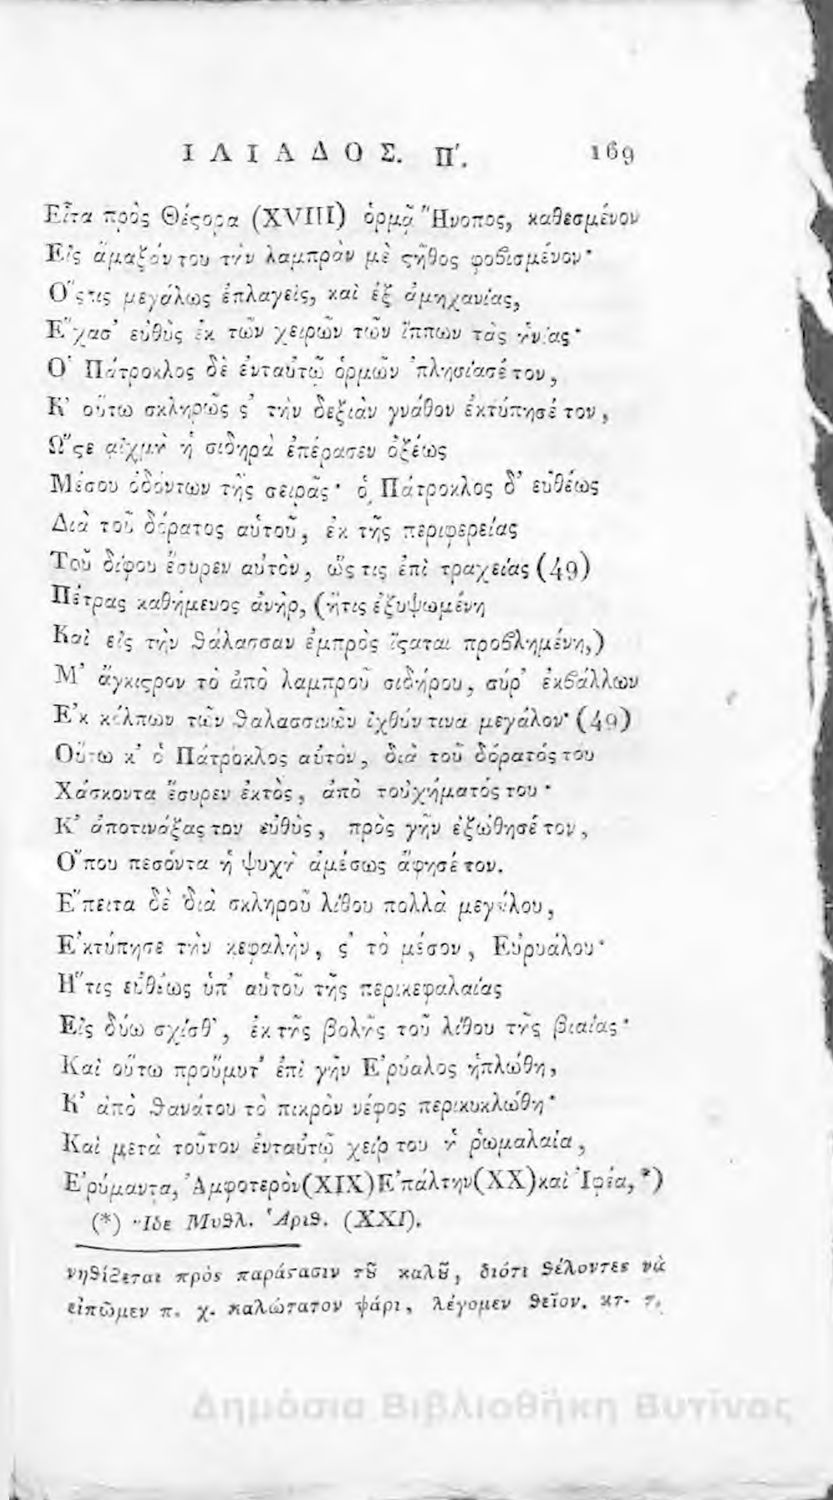 ΙΛΙΑΔΟΣ. Π´. 169
Εἶτα πρὸς Θέϛορα (XVIII) ὁρμᾷ Ἤνοπος, καθεσμένον
Εἰς ἅμαξάν του τὴν λαμπρὰν μὲ ϛῆθος φοβισμένον·
Ὅϛις μεγάλως ἐπλαγεὶς, καὶ ἐξ ἀμηχανίας,
Ἔχασ' εὐθὺς ἐκ τῶν χειρῶν τῶν ἵππων τὰς ἡνίας·
Ὁ Πάτροκλος δὲ ἐνταὐτῷ ὁρμῶν 'πλησίασέ τον,
Κ' οὕτω σκληρῶς ϛ' τὴν δεξιὰν γνάθον ἐκτύπησέ τον,
Ὥϛε αἰχμὴ ἡ σιδηρὰ ἐπέρασεν ὀξέως
Μέσου ὀδόντων τῆς σειρᾶς· ὁ Πάτροκλος δ' εὐθέως
Διὰ τοῦ δόρατος αὑτοῦ, ἐκ τῆς περιφερείας
Τοῦ δίφου ἔσυρεν αὐτὸν, ὥς τις ἐπὶ τραχείας (49)
Πέτρας καθήμενος ἀνὴρ, (ἥτις ἐξυψωμένη
Καὶ εἰς τὴν θάλασσαν ἐμπρὸς ἵϛαται προβλημένη,)
Μ' ἄγκιϛρον τὸ ἀπὸ λαμπροῦ σιδήρου, σύρ' ἐκβάλλων
Ἐκ κόλπων τῶν θαλασσινῶν ἰχθύν τινα μεγάλον· (49)
Οὕτω κ' ὁ Πάτροκλος αὐτὸν, διὰ τοῦ δόρατός του
Χάσκοντα ἔσυρεν ἐκτὸς, ἀπὸ τοὐχήματός του·
Κ' ἀποτινάξας τον εὐθὺς, πρὸς γῆν ἐξώθησέ τον,
Ὅπου πεσόντα ἡ ψυχὴ ἀμέσως ἄφησέ τον.
Ἔπειτα δὲ διὰ σκληροῦ λίθου πολλὰ μεγάλου,
Ἐκτύπησε τὴν κεφαλὴν, ϛ' τὸ μέσον, Εὐρυάλου·
Ἥτις εὐθέως ὑπ' αὐτοῦ τῆς περικεφαλαίας
Εἰς δύω σχίσθ', ἐκ τῆς βολῆς τοῦ λίθου τῆς βιαίας·
Καὶ οὕτω προὔμυτ' ἐπὶ γῆν Ἐρύαλος ἡπλώθη,
Κ' ἀπὸ θανάτου τὸ πικρὸν νέφος περικυκλώθη·
Καὶ μετὰ τοῦτον ἐνταὐτῷ χείρ του ἡ ῥωμαλαία,
Ἐρύμαντα, Ἀμφοτερὸν (XIX) Ἐπάλτην (XX) καὶ Ἰφέα, *)
(*) Ἴδε Μυθλ. Ἀριθ. (XXI).
νηθίζεται πρὸς παράϛασιν τȣ͂ καλȣ͂, διότι θέλοντες νὰ
εἰπῶμεν π. χ. καλώτατον ψάρι, λέγομεν θεῖον. κτ. τ.
Δημόσια Βιβλιοθήκη Βυτίνας